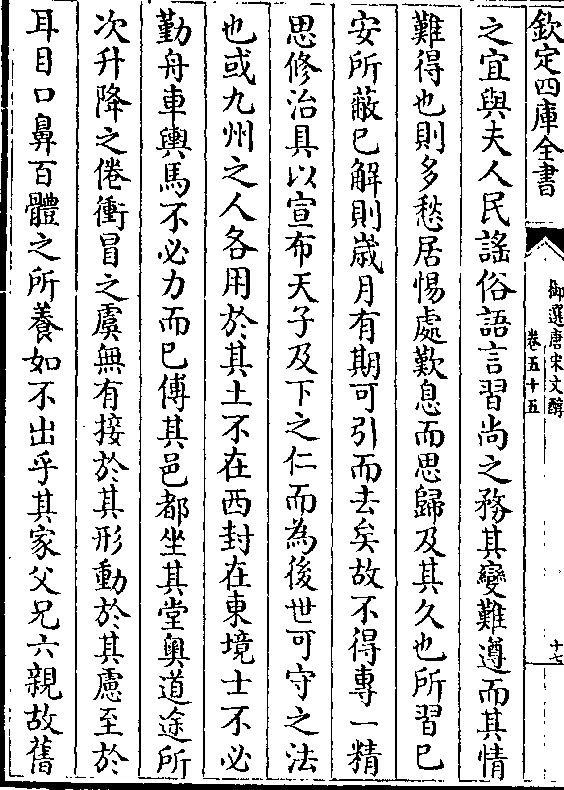 欽定四庫全書
御選唐宋文醇
卷五十五
十七
之宜與夫人民謡俗語言習尚之務其變難遵而其情
難得也則多愁居惕處歎息而思歸及其久也所習已
安所蔽已解則歳月有期可引而去矣故不得專一精
思修治具以宣布天子及下之仁而為後世可守之法
也或九州之人各用於其土不在西封在東境士不必
勤舟車輿馬不必力而已傅其邑都坐其堂奥道途所
次升降之倦衝冒之虞無有接於其形動於其慮至於
耳目口鼻百體之所養如不出乎其家父兄六親故舊